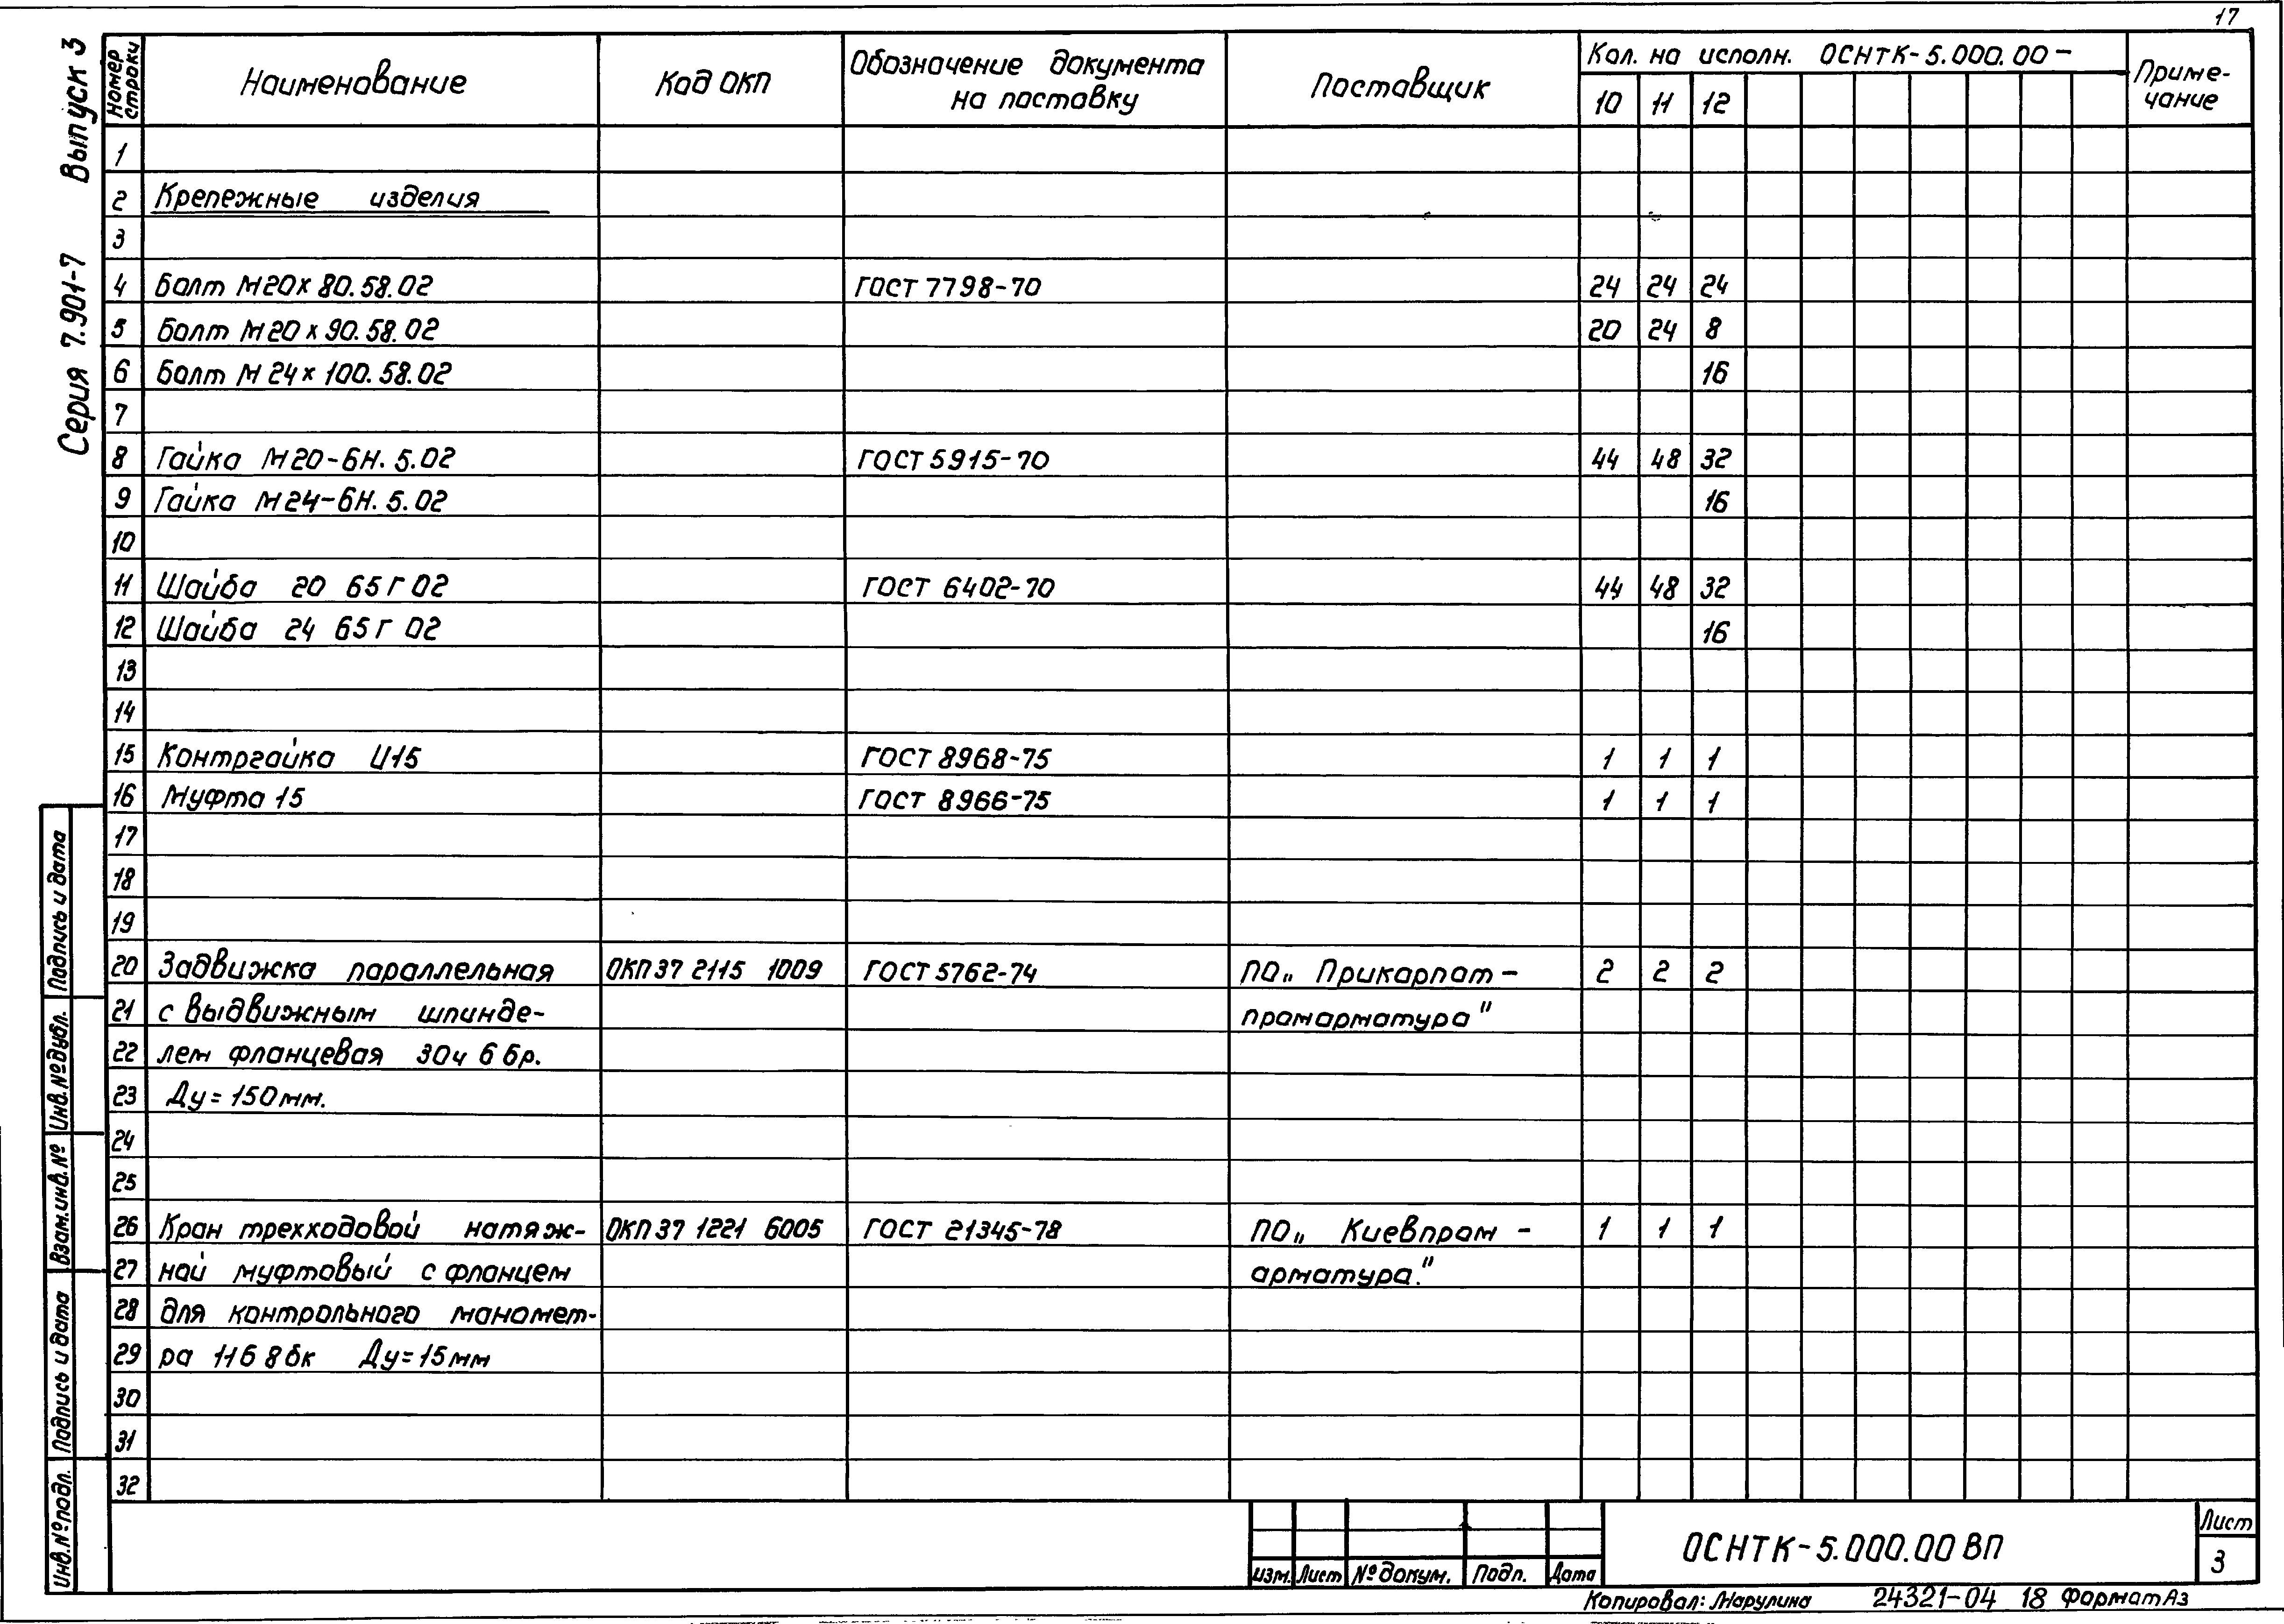 17
Серия 7.901-7 Выпуск 3
Номер строки Наименование Код ОКП Обозначение документа на поставку Поставщик Кол. на исполн. ОСНТК-5.000.00- Приме-чание
10 11 12
1
2 Крепежные изделия
3
4 Болт М20х80.58.02 ГОСТ 7798-70 24 24 24
5 Болт М20х90.58.02 20 24 8
6 Болт М24х100.58.02 16
7
8 Гайка М20-6Н.5.02 ГОСТ 5915-70 44 48 32
9 Гайка М24-6Н.5.02 16
10
11 Шайба 20 65Г 02 ГОСТ 6402-70 44 48 32
12 Шайба 24 65Г 02 16
13
14
15 Контргайка Ц15 ГОСТ 8968-75 1 1 1
16 Муфта 15 ГОСТ 8966-75 1 1 1
17
18
19
20 Задвижка параллельная ОКП 37 2115 1009 ГОСТ 5762-74 ПО „Прикарпат- 2 2 2
21 с выдвижным шпинде- промарматура"
22 лем фланцевая 30ч 6 бр.
23 Ду=150мм.
24
25
26 Кран трехходовой натяж- ОКП 37 1221 6005 ГОСТ 21345-78 ПО „Киевпром- 1 1 1
27 ной муфтовый с фланцем арматура."
28 для контрольного маномет-
29 ра 11б 8бк Ду=15мм
30
31
32
Подпись и дата
Инв.№дубл.
Взам.инв.№
Подпись и дата
Инв.№подл.
Изм. Лист №докум. Подп. Дата
ОСНТК-5.000.00 ВП
Лист
3
Копировал: Марулина 24321-04 18 Формат А3